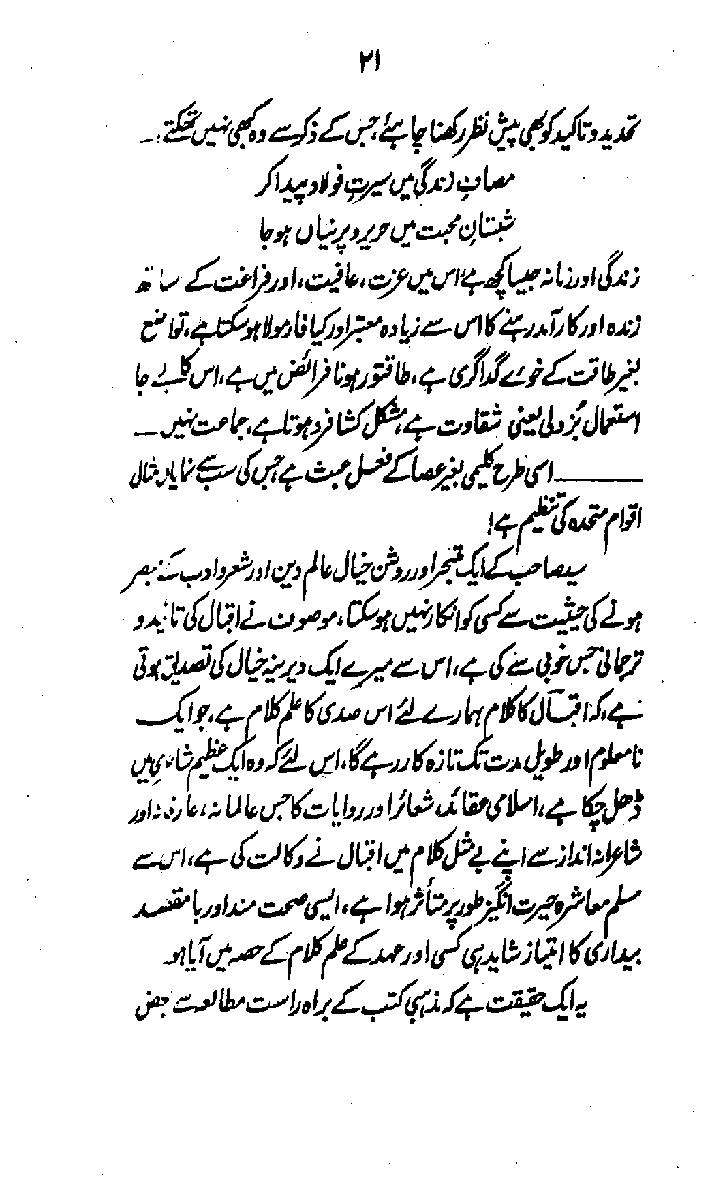 ۲۱
تحدید و تاکید کو بھی پیش نظر رکھنا چاہئے، جس کے ذکر سے وہ کبھی نہیں تھکتے:۔
مصافِ زندگی میں سیرتِ فولاد پیدا کر
شبستانِ محبت میں حریر و پرنیاں ہو جا
زندگی اور زمانہ جیسا کچھ ہے اس میں عزت، عافیت، اور فراغت کے ساتھ
زندہ اور کارآمد رہنے کا اس سے زیادہ معتبر اور کیا فارمولا ہو سکتا ہے، تواضع
بغیر طاقت کے خوئے گداگری ہے، طاقتور ہونا فرائض میں ہے، اس کا بے جا
استعمال بزدلی یعنی شقاوت ہے، مشکل کشا فرد ہوتا ہے، جماعت نہیں ــ
ــــــــ اسی طرح کلیمی بغیر عصا کے فعل عبث ہے جس کی سب سے نمایاں مثال
اقوام متحدہ کی تنظیم ہے!
سید صاحب کے ایک متبحر اور روشن خیال عالم دین اور شعر و ادب کے مبصر
ہونے کی حیثیت سے کسی کو انکار نہیں ہو سکتا، موصوف نے اقبال کی تائید و
ترجمانی جس خوبی سے کی ہے، اس سے میرے ایک دیرینہ خیال کی تصدیق ہوتی
ہے، کہ اقبال کا کلام ہمارے لئے اس صدی کا علم کلام ہے، جو ایک
نامعلوم اور طویل مدت تک تازہ کار رہے گا، اس لئے کہ وہ ایک عظیم شاعری میں
ڈھل چکا ہے، اسلامی عقائد، شعائر اور روایات کا جس عالمانہ، عارفانہ اور
شاعرانہ انداز سے اپنے بے مثل کلام میں اقبال نے وکالت کی ہے، اس سے
مسلم معاشرہ حیرت انگیز طور پر متأثر ہوا ہے، ایسی صحت مند اور با مقصد
بیداری کا امتیاز شاید ہی کسی اور عہد کے علم کلام کے حصہ میں آیا ہو
یہ ایک حقیقت ہے کہ مذہبی کتب کے براہ راست مطالعہ سے بعض